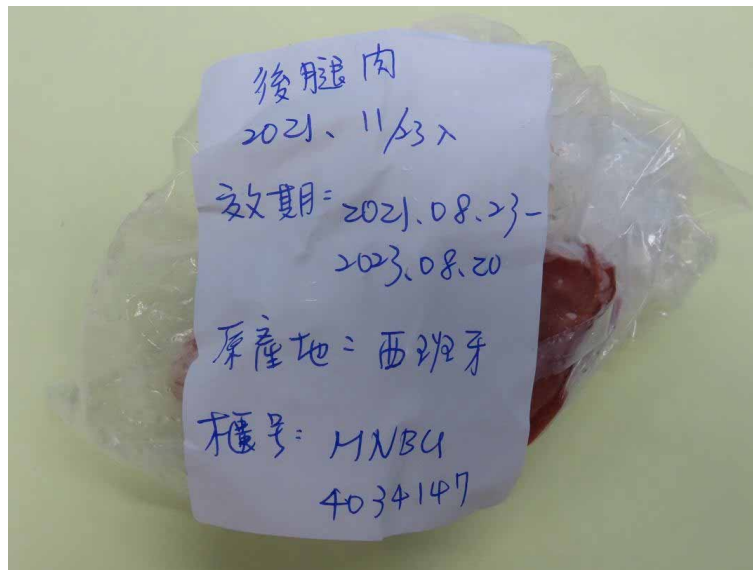 後腿肉
2021、11/23入
效期=2021.08.23-
2023.08.20
原產地=西班牙
櫃号: MNBU
4034147